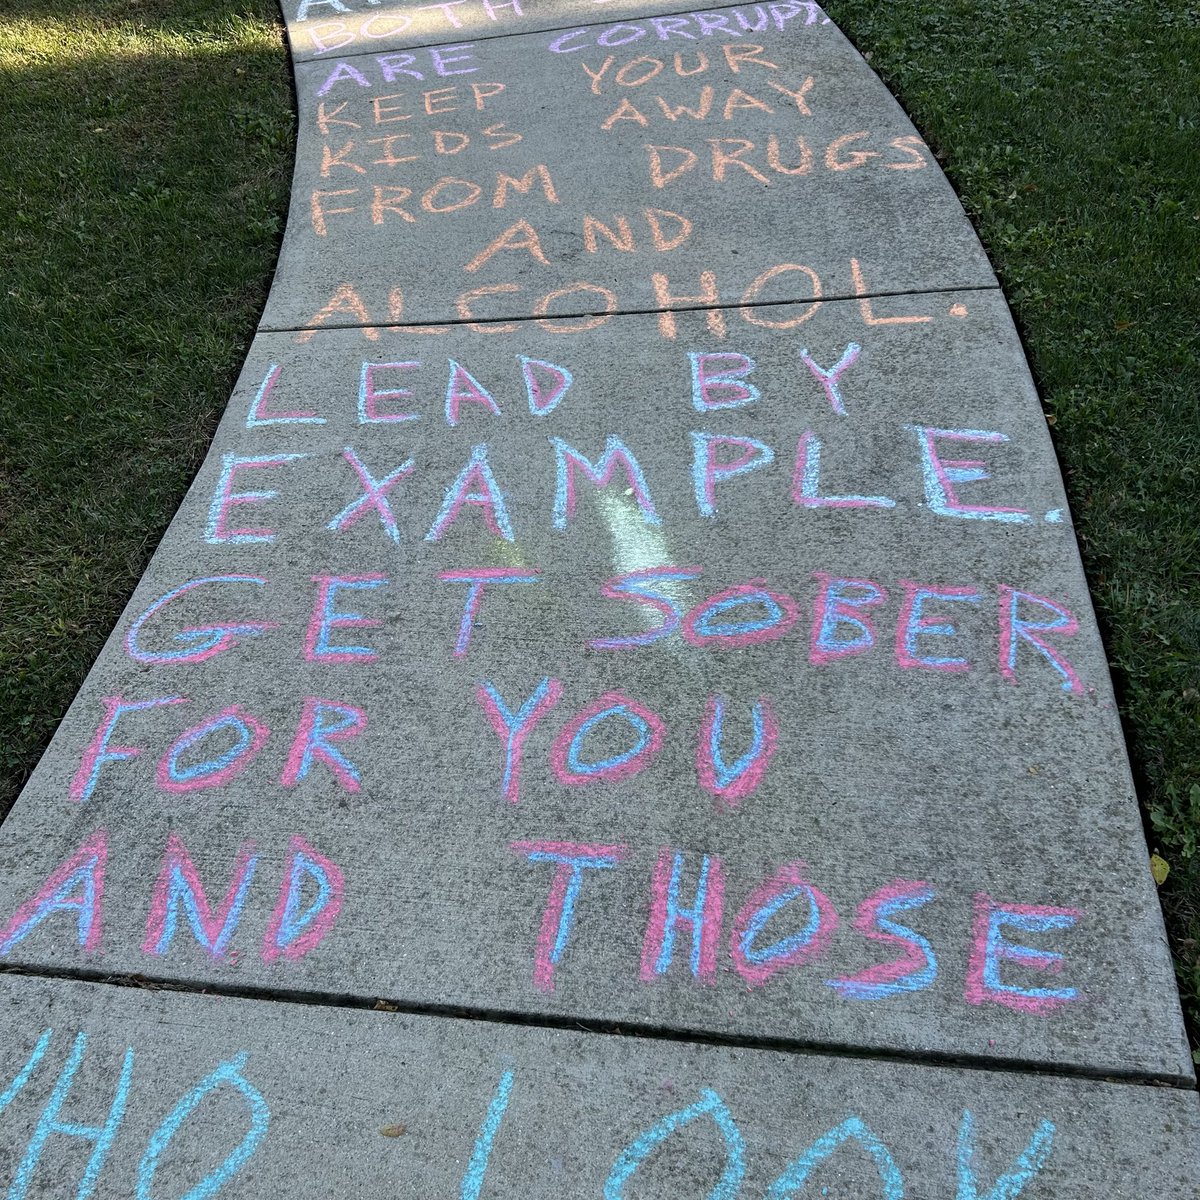 BOTH
ARE CORRUPT.
KEEP YOUR
KIDS AWAY
FROM DRUGS
AND
ALCOHOL.
LEAD BY
EXAMPLE.
GET SOBER
FOR YOU
AND THOSE
WHO LOOK